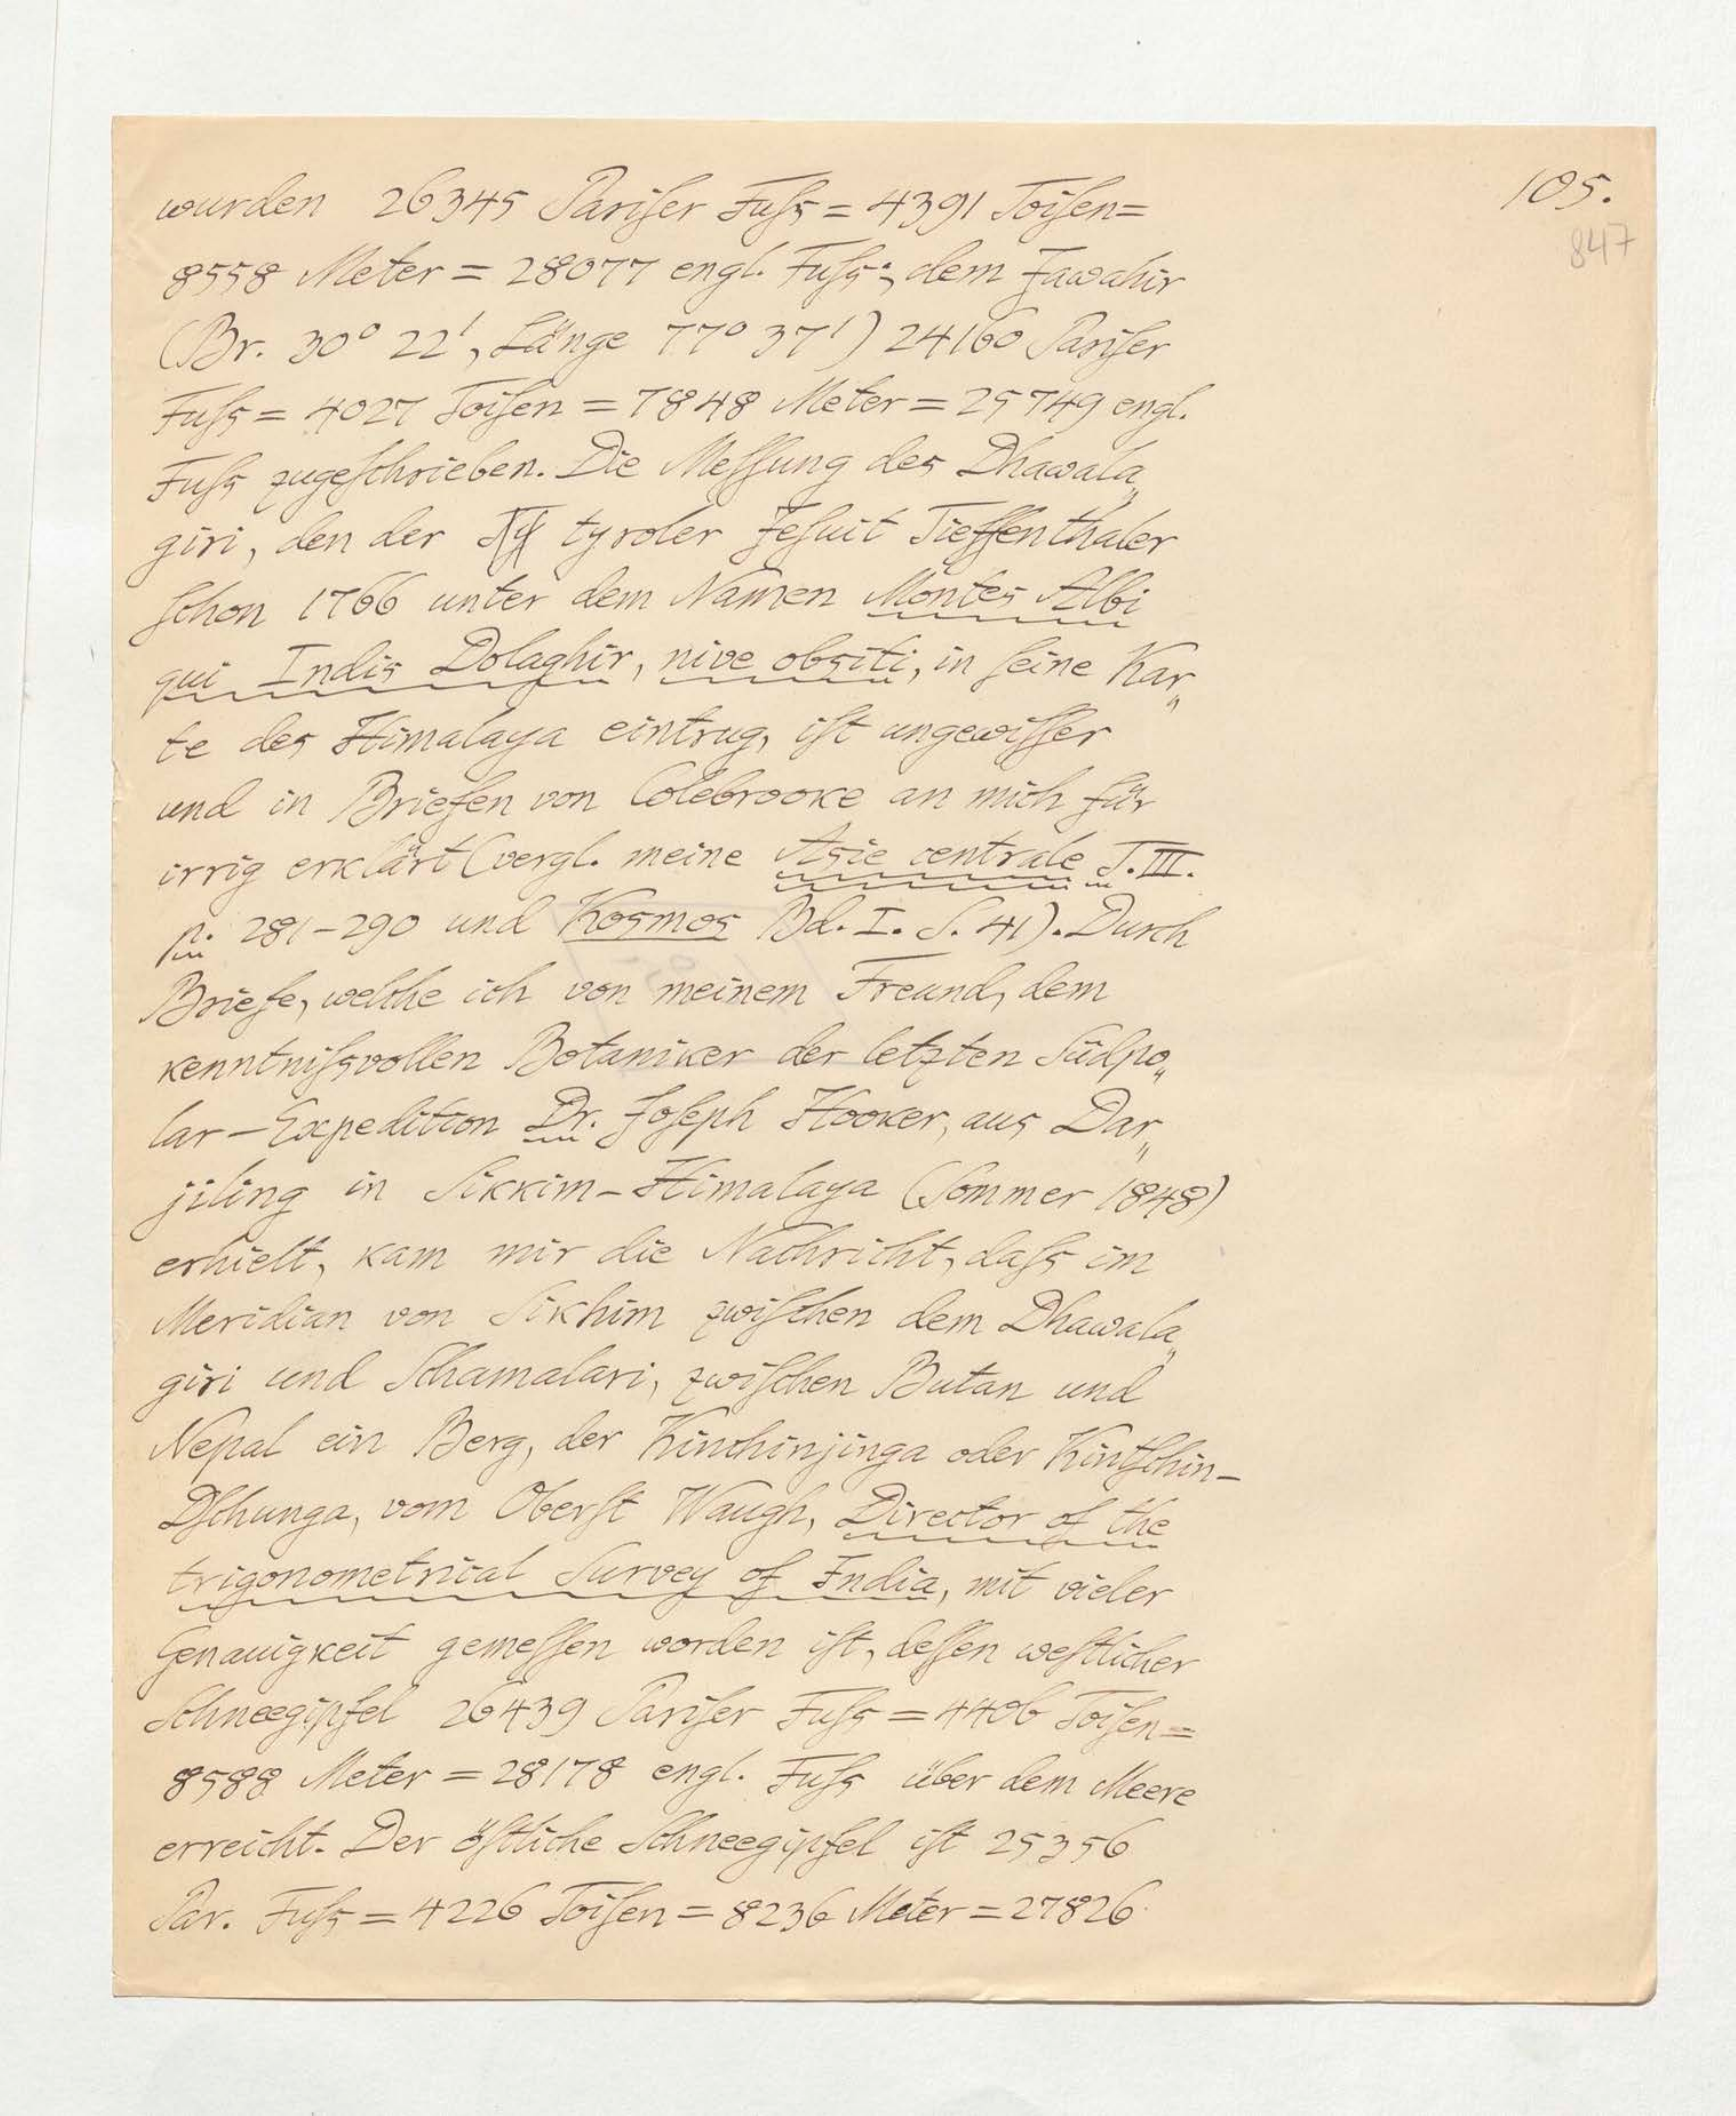 105.
847
wurden 26345 Pariſer Fuſs = 4391 Toiſen=
8558 Meter = 28077 engl. Fuſs; dem Jawahir
(Br. 30° 22', Länge 77° 37') 24160 Pariſer
Fuſs = 4027 Toiſen = 7848 Meter = 25749 engl.
Fuſs zugeſchrieben. Die Meſſung des Dhawala„
giri, den der tyroler Jeſuit Tieffenthaler
ſchon 1766 unter dem Namen Montes Albi
qui Indis Dolaghir, nive obsiti, in ſeine Kar„
te des Himalaya eintrug, iſt ungewiſſer
und in Briefen von Colebrooke an mich für
irrig erklärt (vergl. meine Asie centrale T. III.
p. 281-290 und Kosmos Bd. I. S. 41). Durch
Briefe, welche ich von meinem Freund, dem
kenntniſsvollen Botaniker der letzten Südpo„
lar-Expedition Dr. Joſeph Hooker, aus Dar„
jiling in Sikkim-Himalaya (Sommer 1848)
erhielt, kam mir die Nachricht, daſs im
Meridian von Sikhim zwiſchen dem Dhawala„
giri und Schamalari, zwiſchen Butan und
Nepal ein Berg, der Kinchinjinga oder Kintſchin-
Dſchunga, vom Oberſt Waugh, Director of the
trigonometrical Survey of India, mit vieler
Genauigkeit gemeſſen worden iſt, deſſen weſtlicher
Schneegipfel 26439 Pariſer Fuſs = 4406 Toiſen=
8588 Meter = 28178 engl. Fuſs über dem Meere
erreicht. Der öſtliche Schneegipfel iſt 25356
Par. Fuſs = 4226 Toiſen = 8236 Meter = 27826